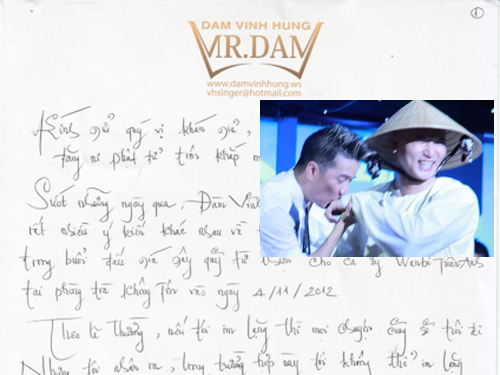 ①
DAM VINH HUNG
MR.DAM
www.damvinhhung.ws
vhsinger@hotmail.com
Kính gửi quý vị khán giả,
tăng ni phật tử trên khắp
Suốt những ngày qua, Đàm Vĩnh
rất nhiều ý kiến khác nhau về
trong buổi đấu giá gây quỹ từ thiện cho ca sỹ Wanbi Tuấn Anh
tại phòng trà Không Tên vào ngày 4/11/2012
Theo lẽ thường, nếu tôi im lặng thì mọi chuyện cũng sẽ trôi đi
Nhưng tôi nhận ra, trong trường hợp này tôi không thể im lặng